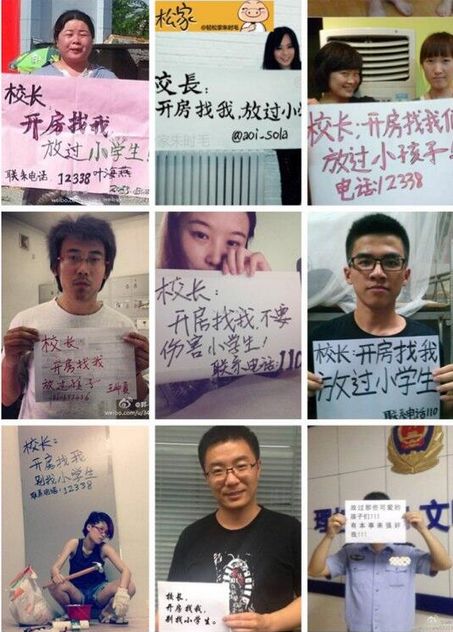 校长，
开房找我，
放过小学生！
联系电话12338 叶海燕
松家
@轻松家朱时毛
校長：
开房找我，放过小学
@aoi_sola
校长：开房找我们
放过小孩子！
电话：12338
校长：
开房找我
放过孩子
校长：
开房找我，不要
伤害小学生！
联系电话：110
校长：开房找我
放过小学生
联系电话110
校长：
开房找我
别找小学生
联系电话：12338
校长，
开房找我，
别找小学生。
放过那些可爱的
孩子们!!!
有本事来强奸
我!!!
文